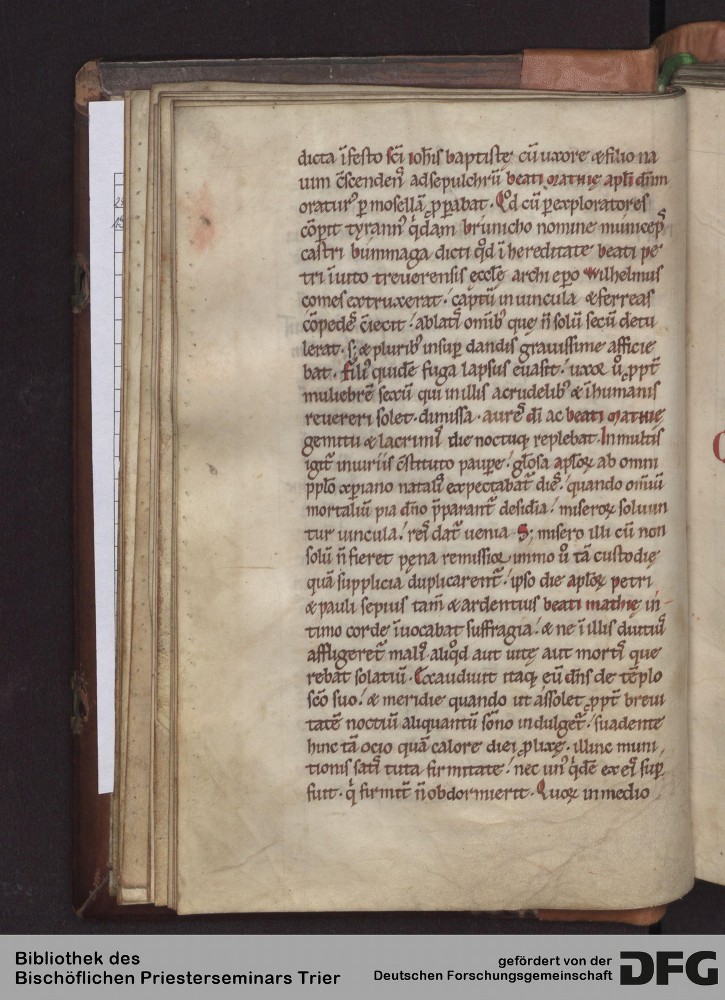 dicta ĩ festo sc̃i ioħis baptiste cũ uxore ⁊ filio na
uim c̃scendenˢ ad sepulchrũ beati mathię apl̃i dñm
oraturꝰ ꝑ mosellã ꝓꝑabat. Qd̃ cũ ꝑ exploratores
cõꝑit tyrannꝰ q̃dam brunicho nomine municepˢ
castri bummaga dicti qd̃ ĩ hereditate beati pe
tri ĩuito treuerensis eccl̃e archiep̃o wilhelmus
comes extruxerat. captũ in uincula ⁊ ferreas
cõpedeˢ c̃iecit. ablatiˢ om̃ibꝰ que ñ solũ secũ detu
lerat. s; ⁊ pluribꝰ insuꝑ dandis grauissime afficie
bat. Filiꝰ quidẽ fuga lapsus euasit. uxor u͂o ꝓpt̃
muliebrẽ sexũ qui in illis a crudelibꝰ ⁊ ĩhumanis
reuereri solet. dimissa. aureˢ dĩ ac beati mathię
gemitu ⁊ lacrimiˢ die noctuqꝫ replebat. In multis
igit̃ iniuriis c̃stituto pauꝑe. gl̃osa apl̃oꝝ ab omni
pp̃lo xp̃iano natalˢ expectabat̃ dieˢ. quando om̃iũ
mortaliũ pia dño p̃parant̃ desidia. miseroꝝ soluun
tur uincula. reiˢ dat̃ uenia. S; misero illi cũ non
solũ ñ fieret pęna remissior immo u͂o tã custodię
quã supplicia duplicarent̃. ipso die apl̃oꝝ petri
⁊ pauli sepius tam̃ ⁊ ardentius beati mathię in
timo corde ĩuocabat suffragia. ⁊ ne ĩ illis diutiuˢ
affligeret̃ maliˢ. aliqd̃ aut uitę aut mortiˢ que
rebat solatiũ. Exaudiuit itaqꝫ eũ dñs de tẽplo
sc̃o suo. ⁊ meridie quando ut assolet ꝓpt̃ breui
tatẽ noctiũ aliquantũ sõno indulget̃. suadente
hinc tã ocio quã calore diei ꝓlixę. illinc muni
tionis satiˢ tuta firmitate. nec unꝰ qd̃e ex eiˢ suꝑ
fuit. q̃ firmit̃ ñ obdormierit. Quoꝝ in medio
Bibliothek des
Bischöflichen Priesterseminars Trier
gefördert von der
Deutschen Forschungsgemeinschaft
DFG